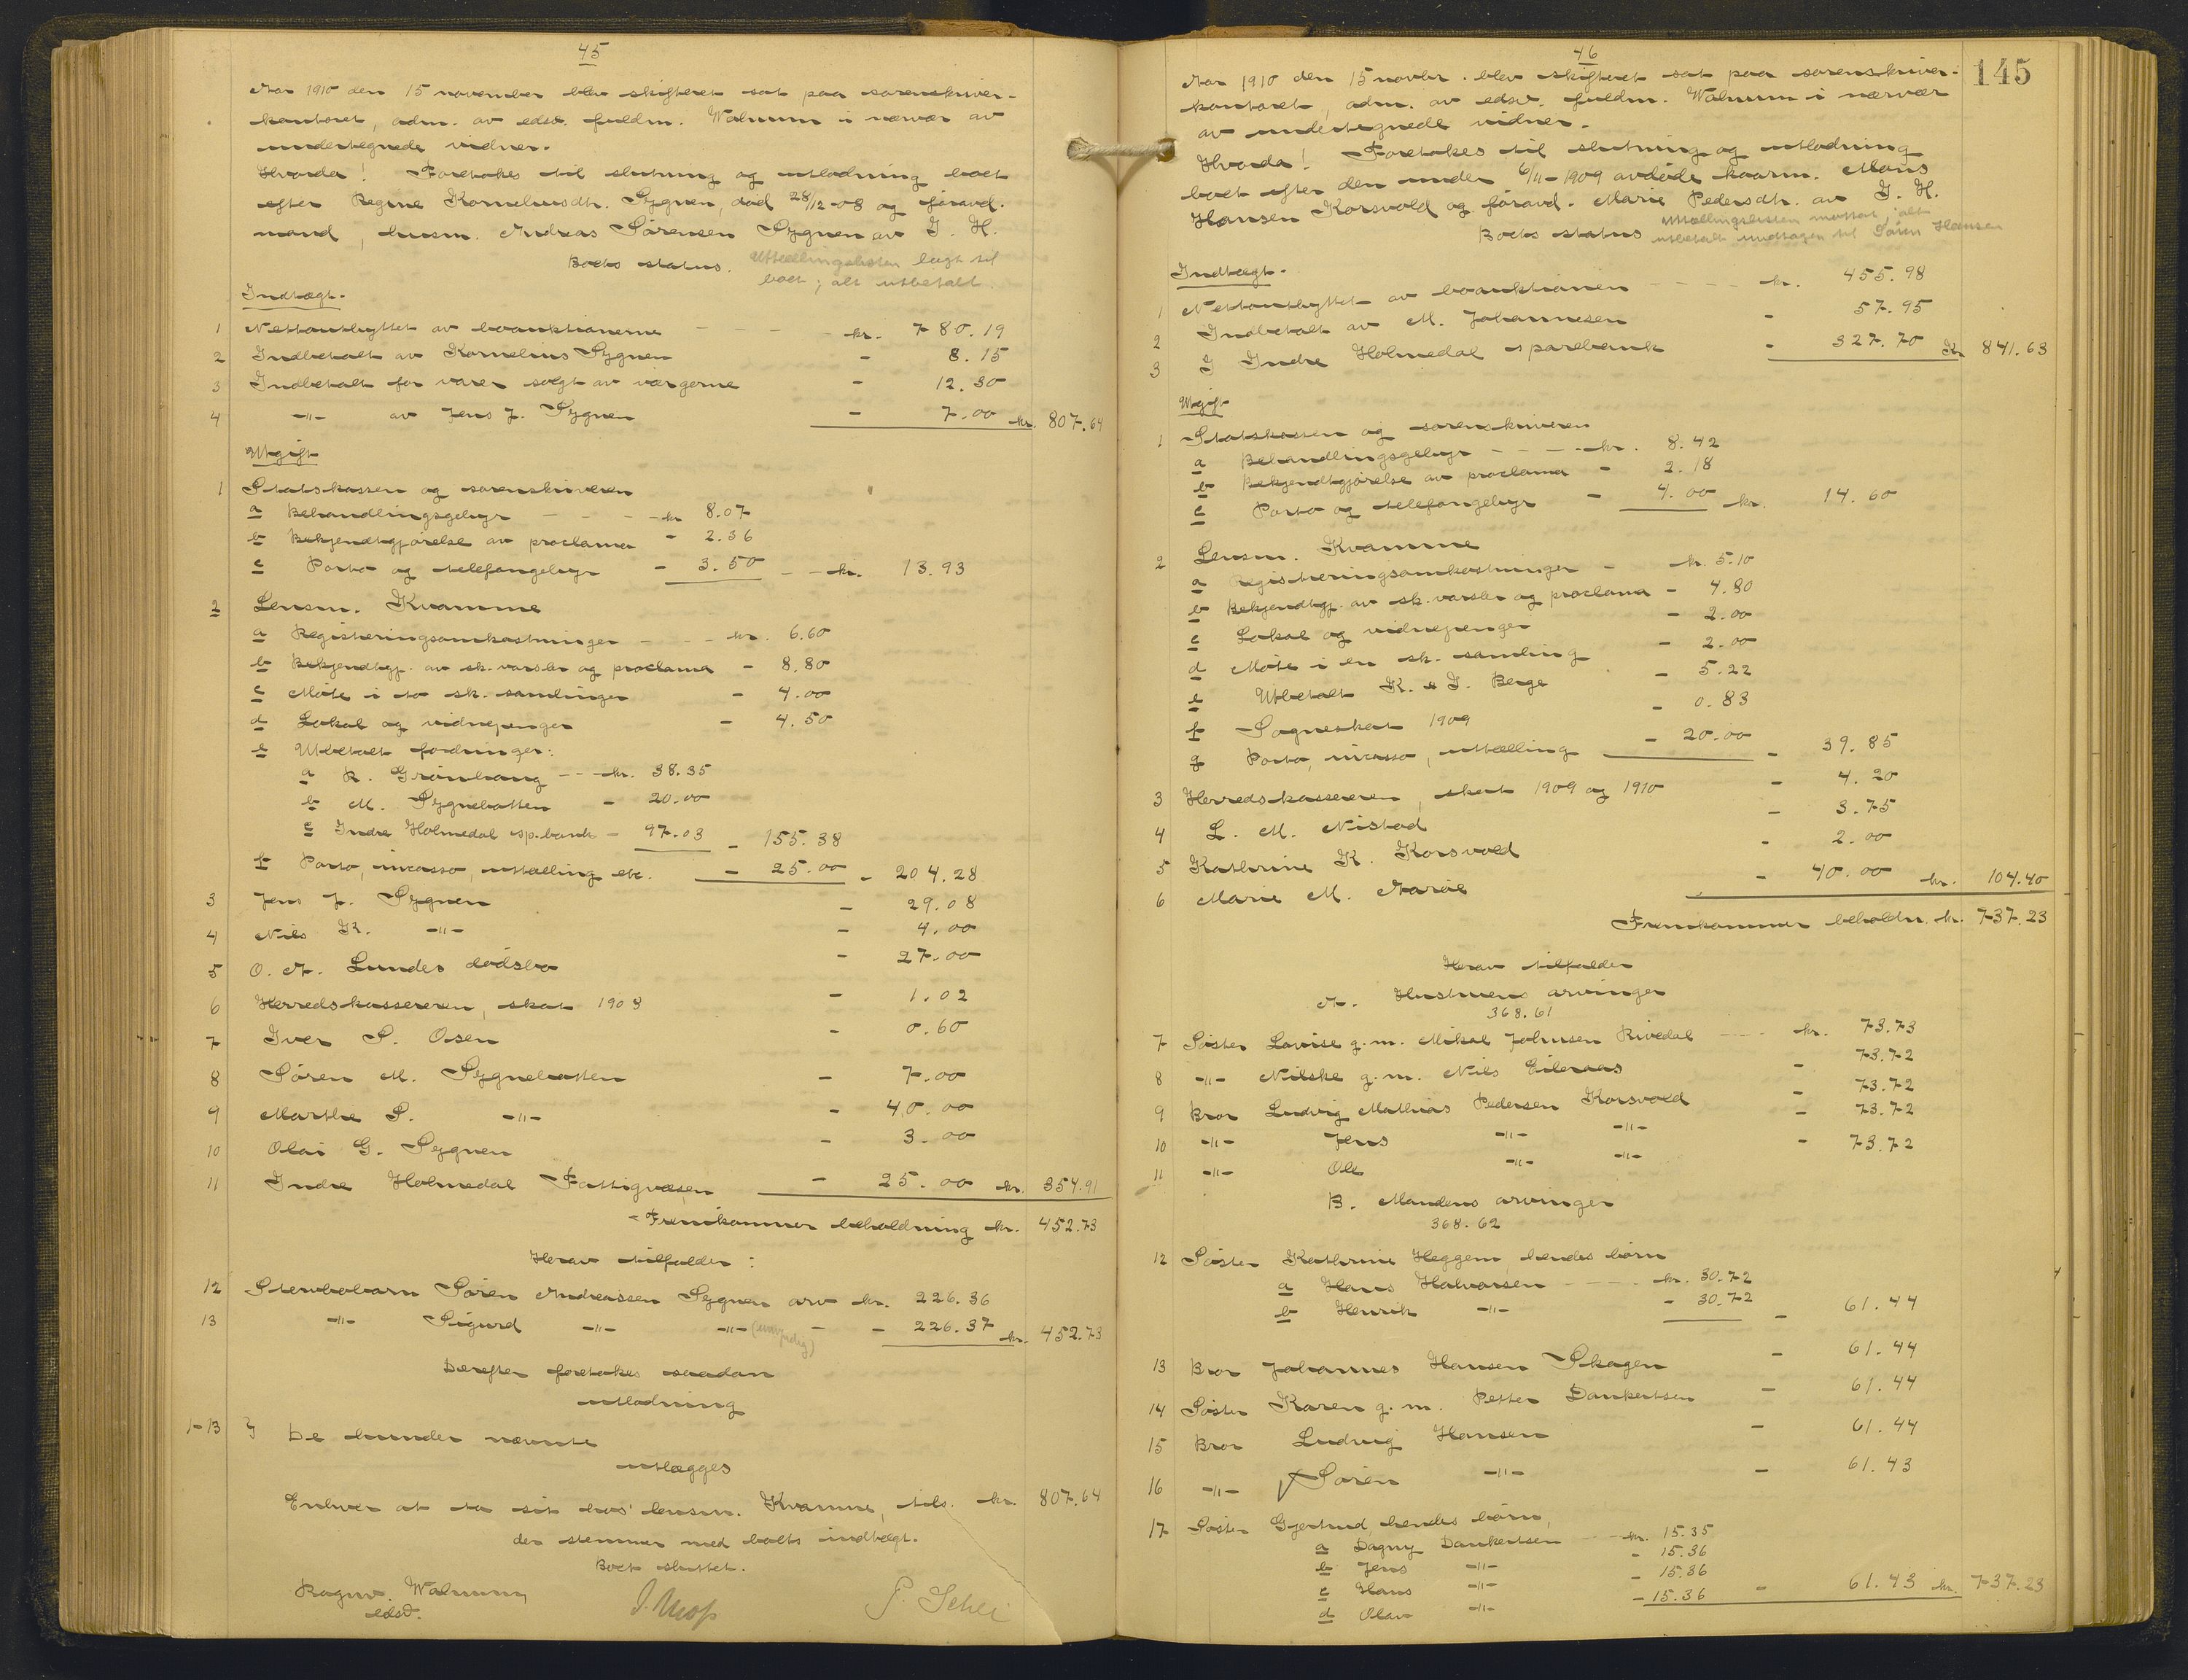 45
Aar 1910 den 15 november blev skifteret sat paa sorenskriver-
kontoret, adm. av edsv. fuldm. Walnum i nærvær av
undertegnede vidner.
Hvorda! Foretokes til slutning og utlodning boet
efter Regine Korneliusdtr. Sygnen, død 28/12-08 og foravd.
mand, husm. Andreas Sørensen Sygnen av I. H.
Boets status. Uttællingslisten lagt til
boet; alt utbetalt.
Indtægt.
1 Nettoutbyttet av boauktionerne - - - kr. 780.19
2 Indbetalt av Kornelius Sygnen - 8.15
3 Indbetalt for varer solgt av værgerne - 12.30
4 -"- av Jens J. Sygnen - 7.00 kr. 807.64
Utgift
1 Statskassen og sorenskriveren
a Behandlingsgebyr - - - kr 8.07
b Bekjendtgjørelse av proclama - 2.36
c Porto og telefongebyr - 3.50 - - kr. 13.93
2 Lensm. Kvamme
a Registreringsomkostninger - - - kr. 6.60
b Bekjendtgj. av sk. varsler og proclama - 8.80
c Møte i to sk. samlinger - 4.00
d Lokal og vidnepenger - 4.50
e Utbetalt fordringer:
a R. Grønhaug - - kr. 38.35
b M. Sygnebotten - 20.00
c Indre Holmedal sp.bank - 97.03 - 155.38
f Porto, incasso, uttælling etc. - 25.00 - 204.28
3 Jens J. Sygnen - 29.08
4 Nils K. -"- - 4.00
5 O. A. Lundes dødsbo - 27.00
6 Herredskassereren, skat 1909 - 1.02
7 Iver S. Osen - 0.60
8 Søren M. Sygnebotten - 7.00
9 Marthe S. -"- - 40.00
10 Olai G. Sygnen - 3.00
11 Indre Holmedal Fattigvæsen - 25.00 kr. 354.91
Fremkommer beholdning kr. 452.73
Herav tilfalder:
12 Stervbobarn Søren Andreassen Sygnen arv kr. 226.36
13 -"- Sigurd -"- -"- (umyndig) - - 226.37 kr. 452.73
Derefter foretokes saadan
utlodning
1-13 } De herunder nævnte
utlægges
Enhver at ta sit hos lensm. Kvamme, tils. kr. 807.64
der stemmer med boets indtægt.
Boet sluttet.
Ragnv. Walnum
edsv.
46
145
Aar 1910 den 15 novbr. blev skifteret sat paa sorenskriver-
kontoret, adm. av edsv. fuldm. Walnum i nærvær
av undertegnede vidner.
Hvorda! Foretokes til slutning og utlodning
boet efter den under 6/11-1909 avdøde kaarm. Mons
Hansen Korsvold og foravd. Marie Pedersdtr. av I. H.
Boets status Uttællingslisten mottat, alt
utbetalt undtagen til Søren Hansen
Indtægt.
1 Nettoutbyttet av boauktionen - - - - kr. 455.98
2 Indbetalt av M. Johannesen - 57.95
3 I Indre Holmedal sparebank - 327.70 Kr 841.63
Utgift
1 Statskassen og sorenskriveren
a Behandlingsgebyr - - - - kr. 8.42
b Bekjendtgjørelse av proclama - 2.18
c Porto og telefongebyr - 4.00 kr. 14.60
2 Lensm. Kvamme
a Registreringsomkostninger - kr. 5.10
b Bekjendtgj. av sk. varsler og proclama - 4.80
c Lokal og vidnepenger - 2.00
d Møte i en sk. samling - 2.00
e Utbetalt K. & I. Berge - 5.22
f Sogneskat 1909 - 0.83
g Porto, incasso, uttælling - 20.00 - 39.85
3 Herredskassereren, skat 1909 og 1910 - 4.20
4 L. M. Nistad - 3.75
5 Kathrine K. Korsvold - 2.00
6 Marie M. Aarøe - 40.00 kr. 104.40
Fremkommer beholdn. kr. 737.23
Herav tilfalder
A. Hustruens arvinger
368.61
7 Søster Lovise g. m. Mikal Johnsen Rivedal - - - kr. 73.73
8 -"- Nilske g. m. Nils Eileraas - 73.72
9 Bror Ludvig Mathias Pedersen Korsvold - 73.72
10 -"- Jens -"- -"- - 73.72
11 -"- Ole -"- -"- - 73.72
B. Mandens arvinger
368.62
12 Søster Kathrine Heggem, hendes børn
a Hans Halvorsen - - - - kr. 30.72
b Henrik -"- - 30.72 - 61.44
13 Bror Johannes Hansen Skagen - 61.44
14 Søster Karen g. m. Petter Dankertsen - 61.44
15 Bror Ludvig Hansen - 61.44
16 -"- Søren -"- - 61.43
17 Søster Gjertrud, hendes børn,
a Dagny Dankertsen - - kr. 15.35
b Jens -"- - 15.36
c Hans -"- - 15.36
d Olav -"- - 15.36 - 61.43 kr. 737.23